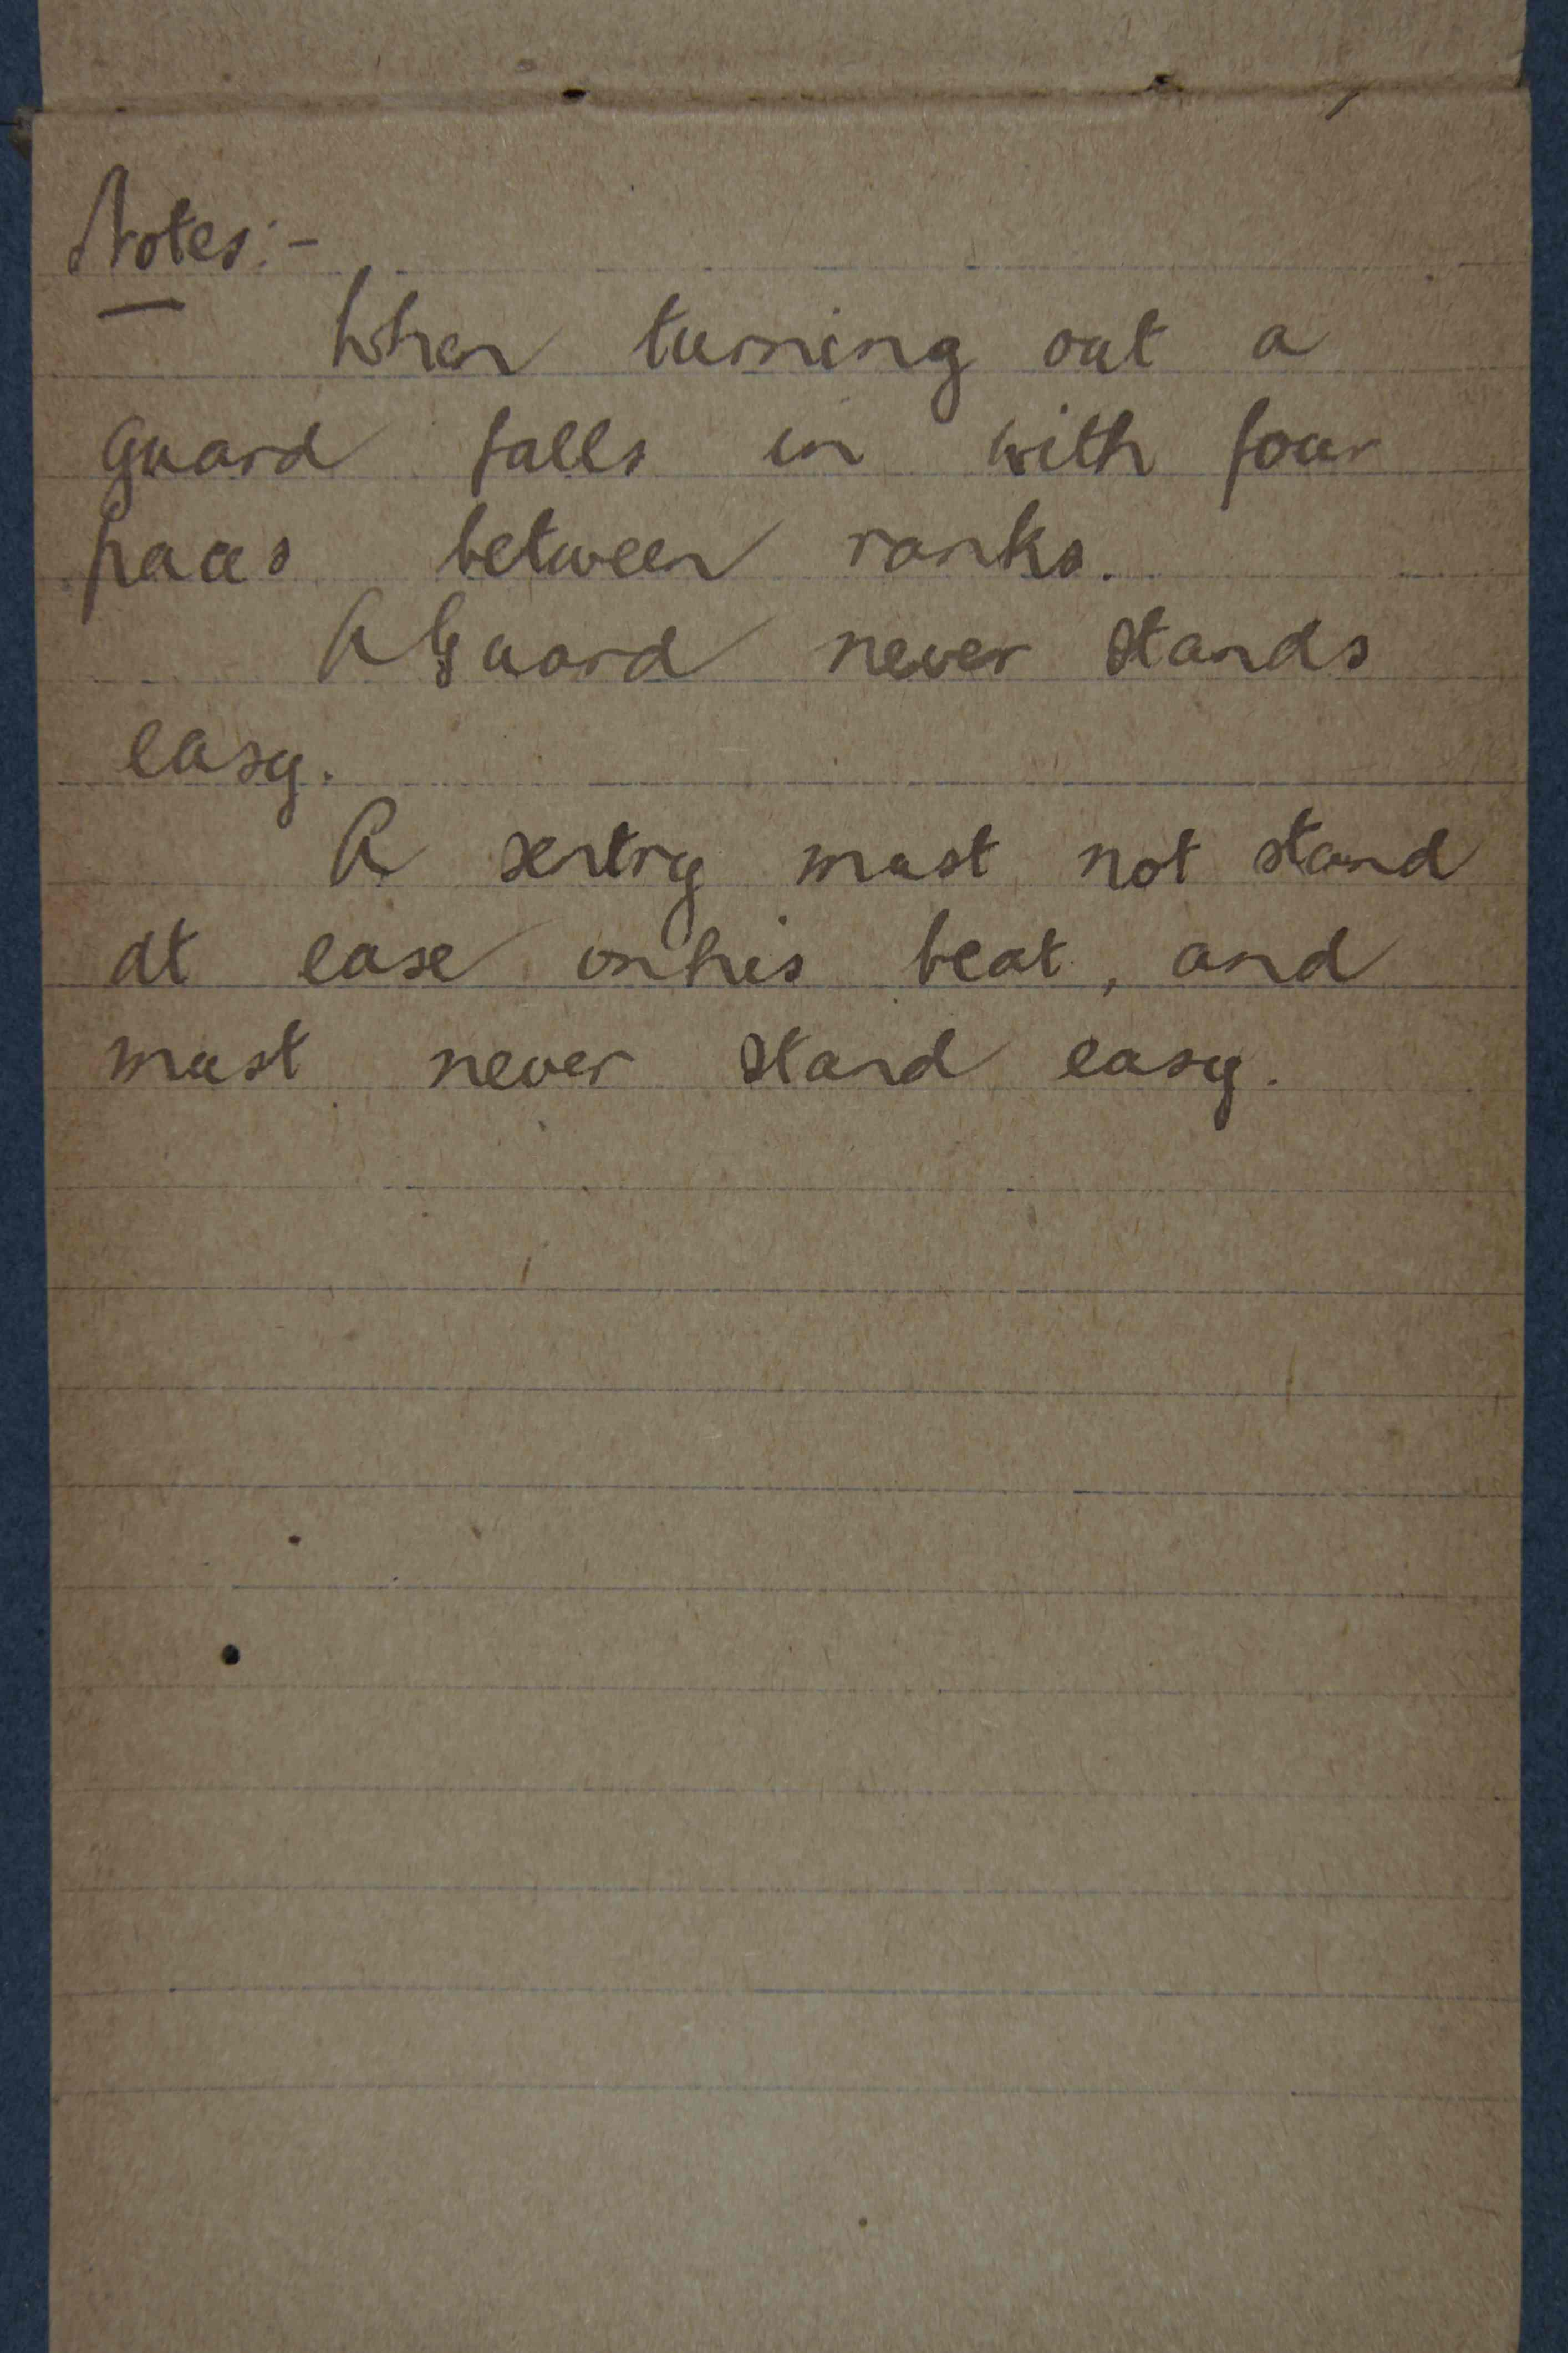 Notes:-
When turning out a
guard falls in with four
paces between ranks.
A Guard never stands
easy.
A sentry must not stand
at ease on his beat, and
must never stand easy.